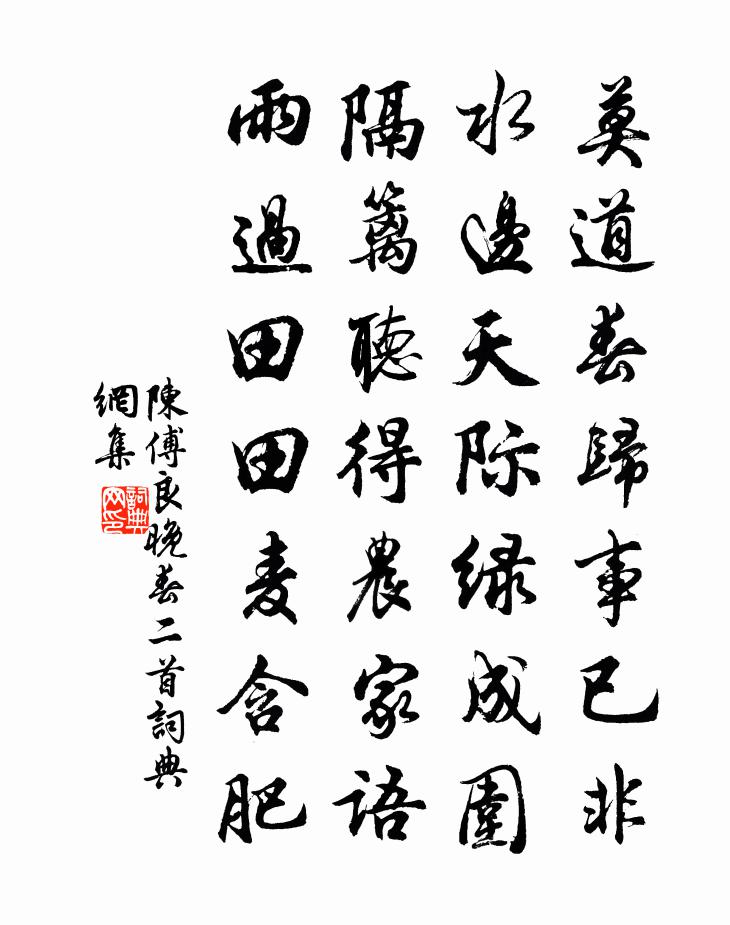 莫道春歸事已非
水邊天际绿成圍
隔籬聽得農家語
雨過田田麦含肥
陳傅良晚春二首詞典
網集
詞典
网印